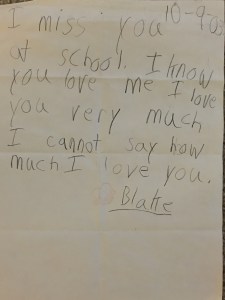 I miss you 10-9-03
at school. I know
you love me I love
you very much
I cannot say how
much I love you.
Blake